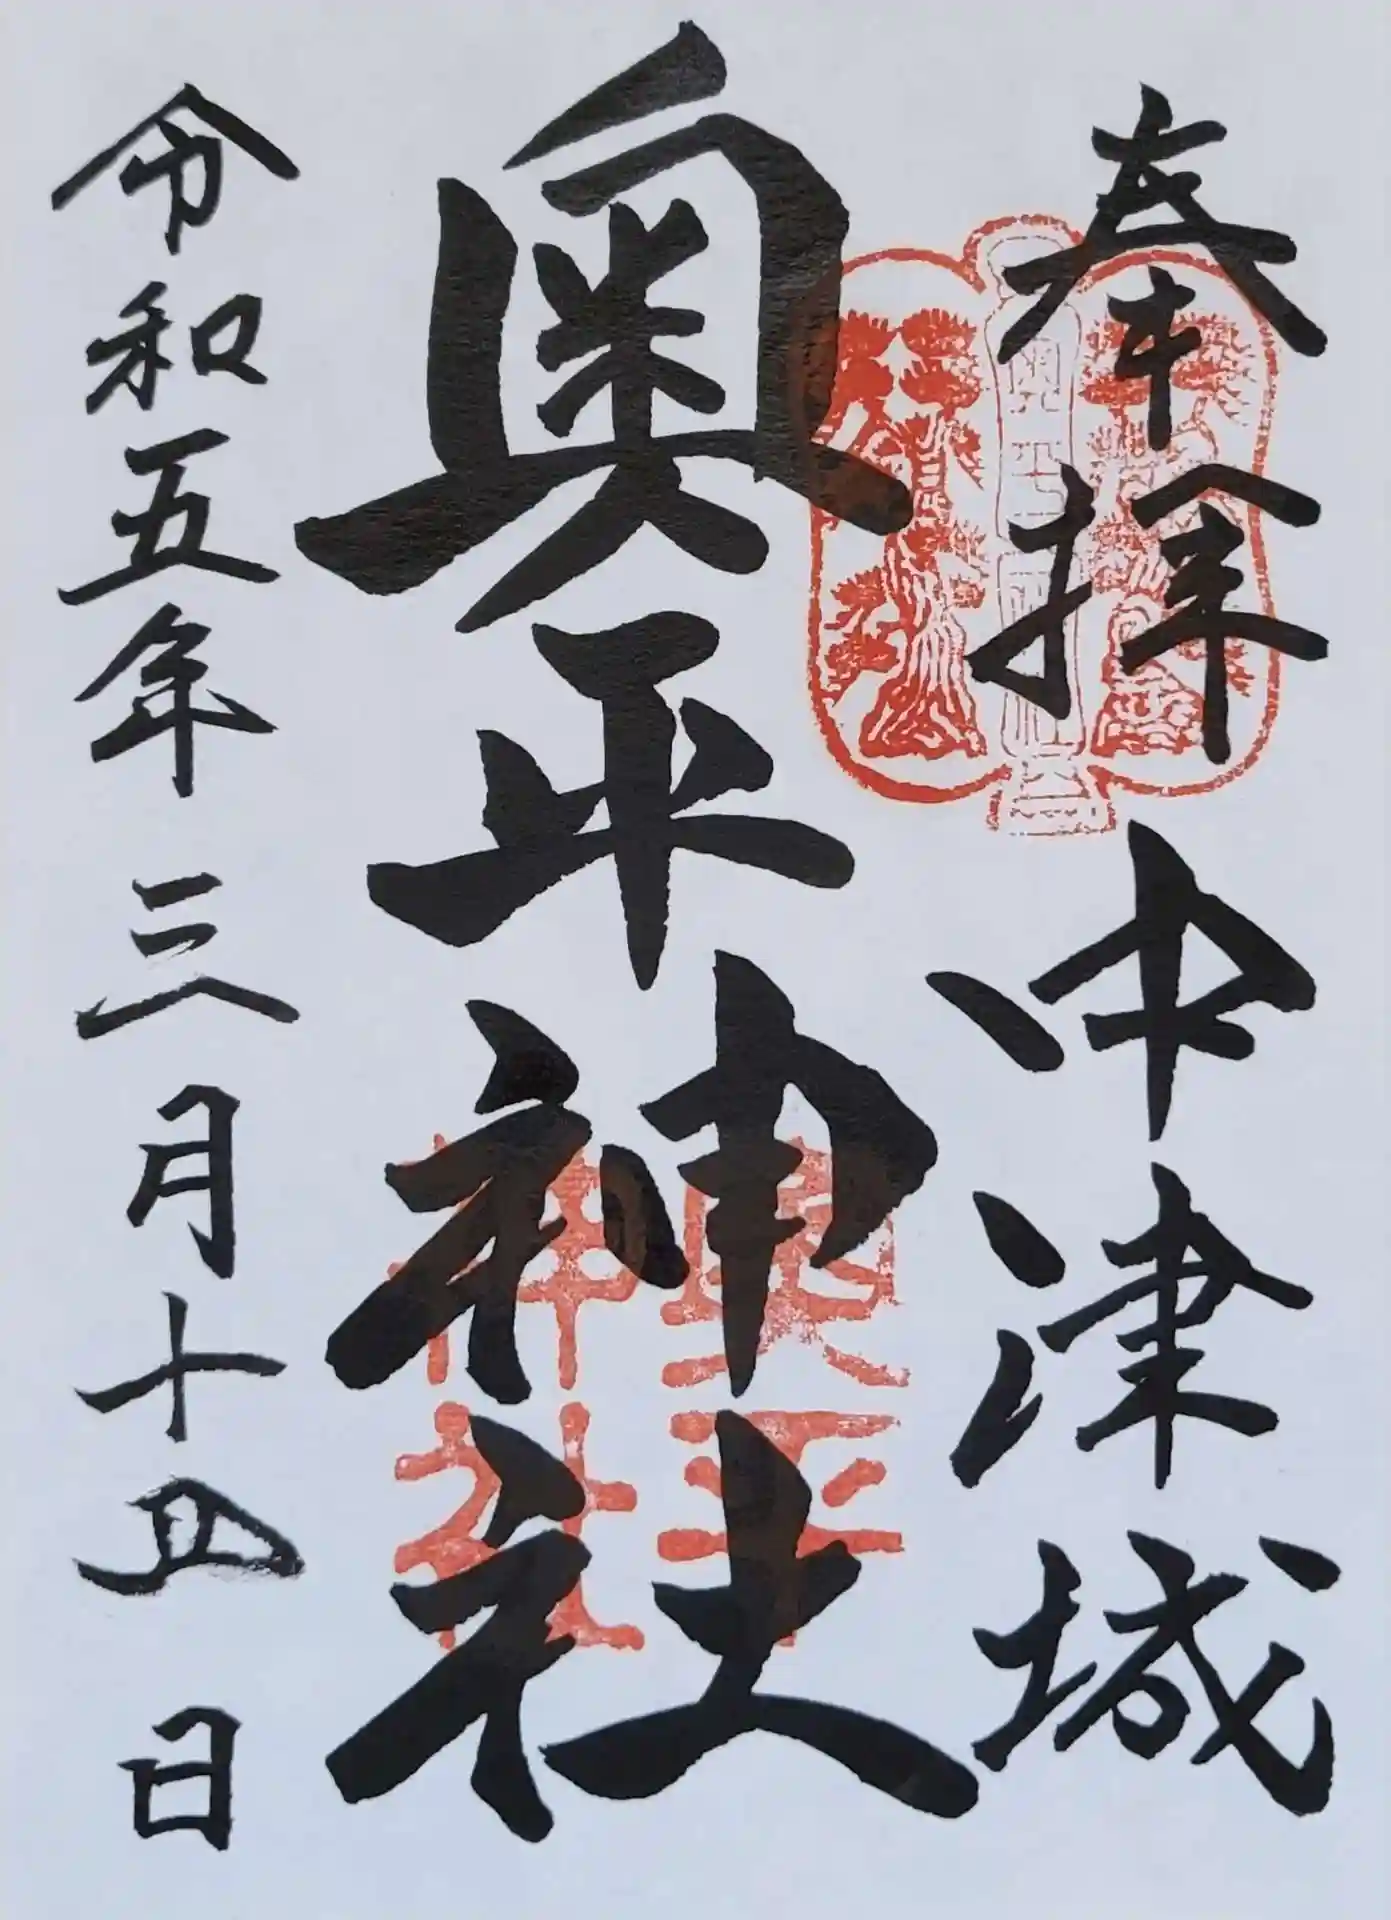 奉拝 中津城
奥平神社
令和五年三月十五日
奥平
神社